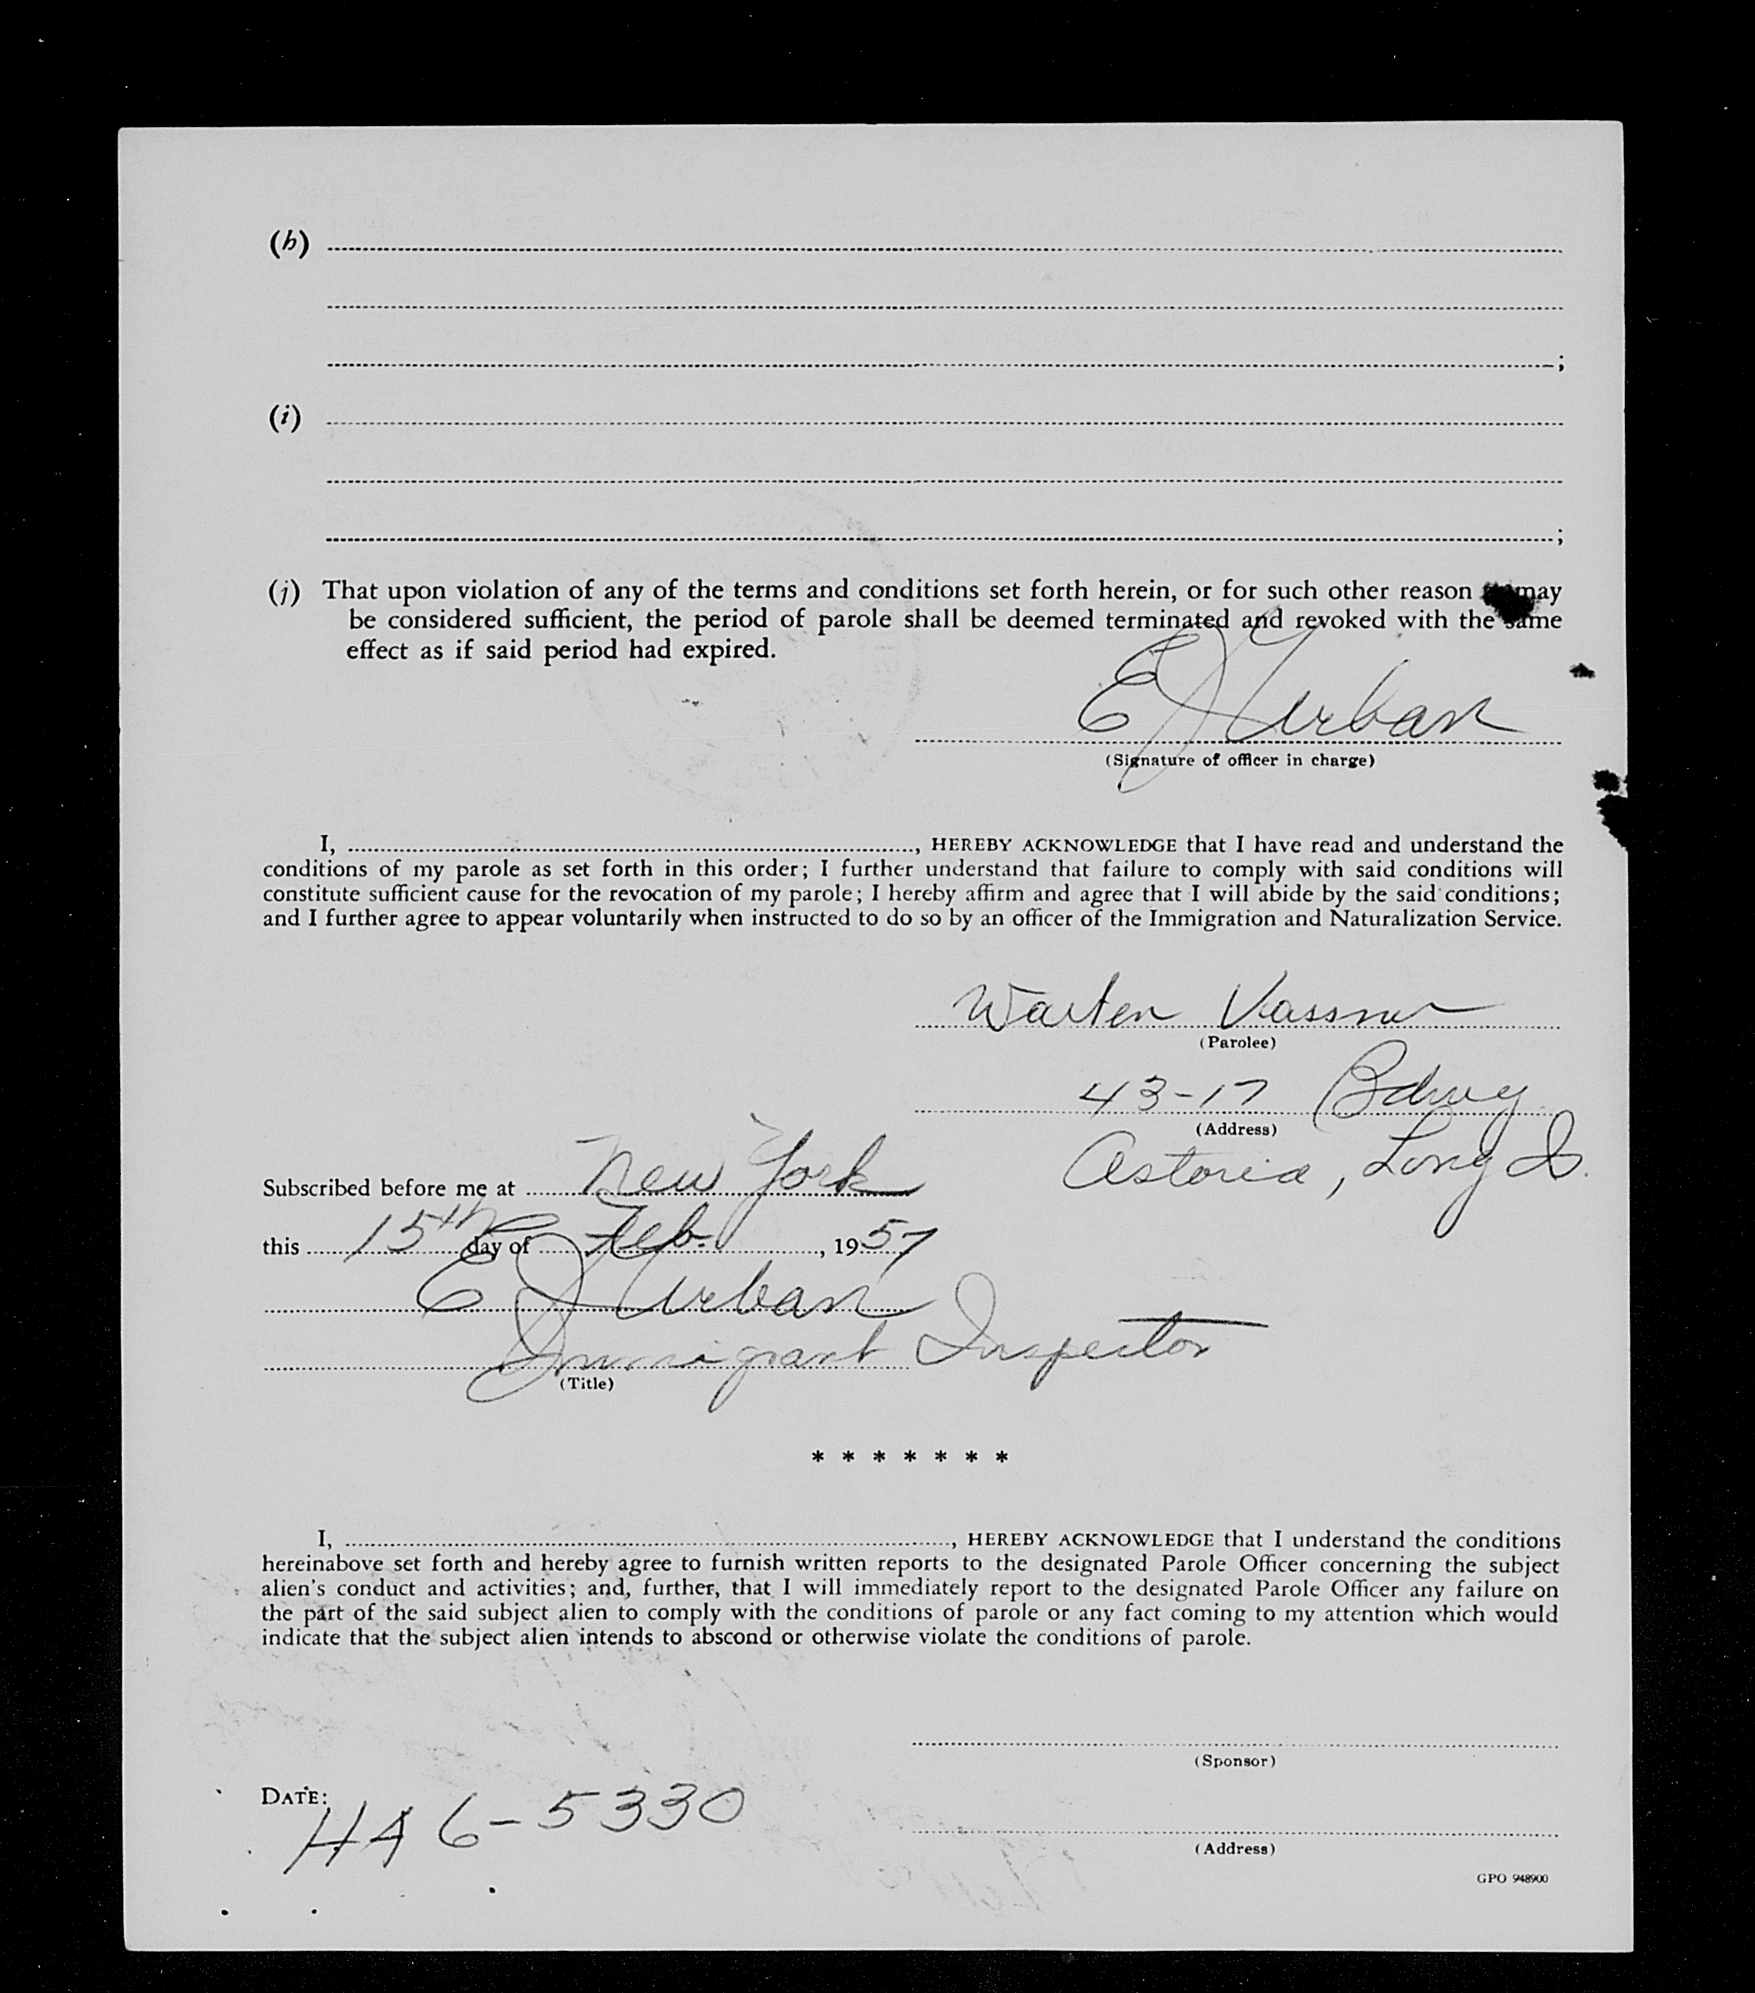 (h)
;
(i)
;
(j) That upon violation of any of the terms and conditions set forth herein, or for such other reason may
be considered sufficient, the period of parole shall be deemed terminated and revoked with the same
effect as if said period had expired.
E J Urban
(Signature of officer in charge)
I, , HEREBY ACKNOWLEDGE that I have read and understand the
conditions of my parole as set forth in this order; I further understand that failure to comply with said conditions will
constitute sufficient cause for the revocation of my parole; I hereby affirm and agree that I will abide by the said conditions;
and I further agree to appear voluntarily when instructed to do so by an officer of the Immigration and Naturalization Service.
(Parolee)
43-17 Bdwy
(Address)
Astoria, Long Is.
Subscribed before me at New York
this 15th day of Feb. , 1957
E J Urban
Immigrant Inspector
(Title)
* * * * * * *
I, , HEREBY ACKNOWLEDGE that I understand the conditions
hereinabove set forth and hereby agree to furnish written reports to the designated Parole Officer concerning the subject
alien's conduct and activities; and, further, that I will immediately report to the designated Parole Officer any failure on
the part of the said subject alien to comply with the conditions of parole or any fact coming to my attention which would
indicate that the subject alien intends to abscond or otherwise violate the conditions of parole.
(Sponsor)
DATE:
HA 6-5330
(Address)
GPO 948900